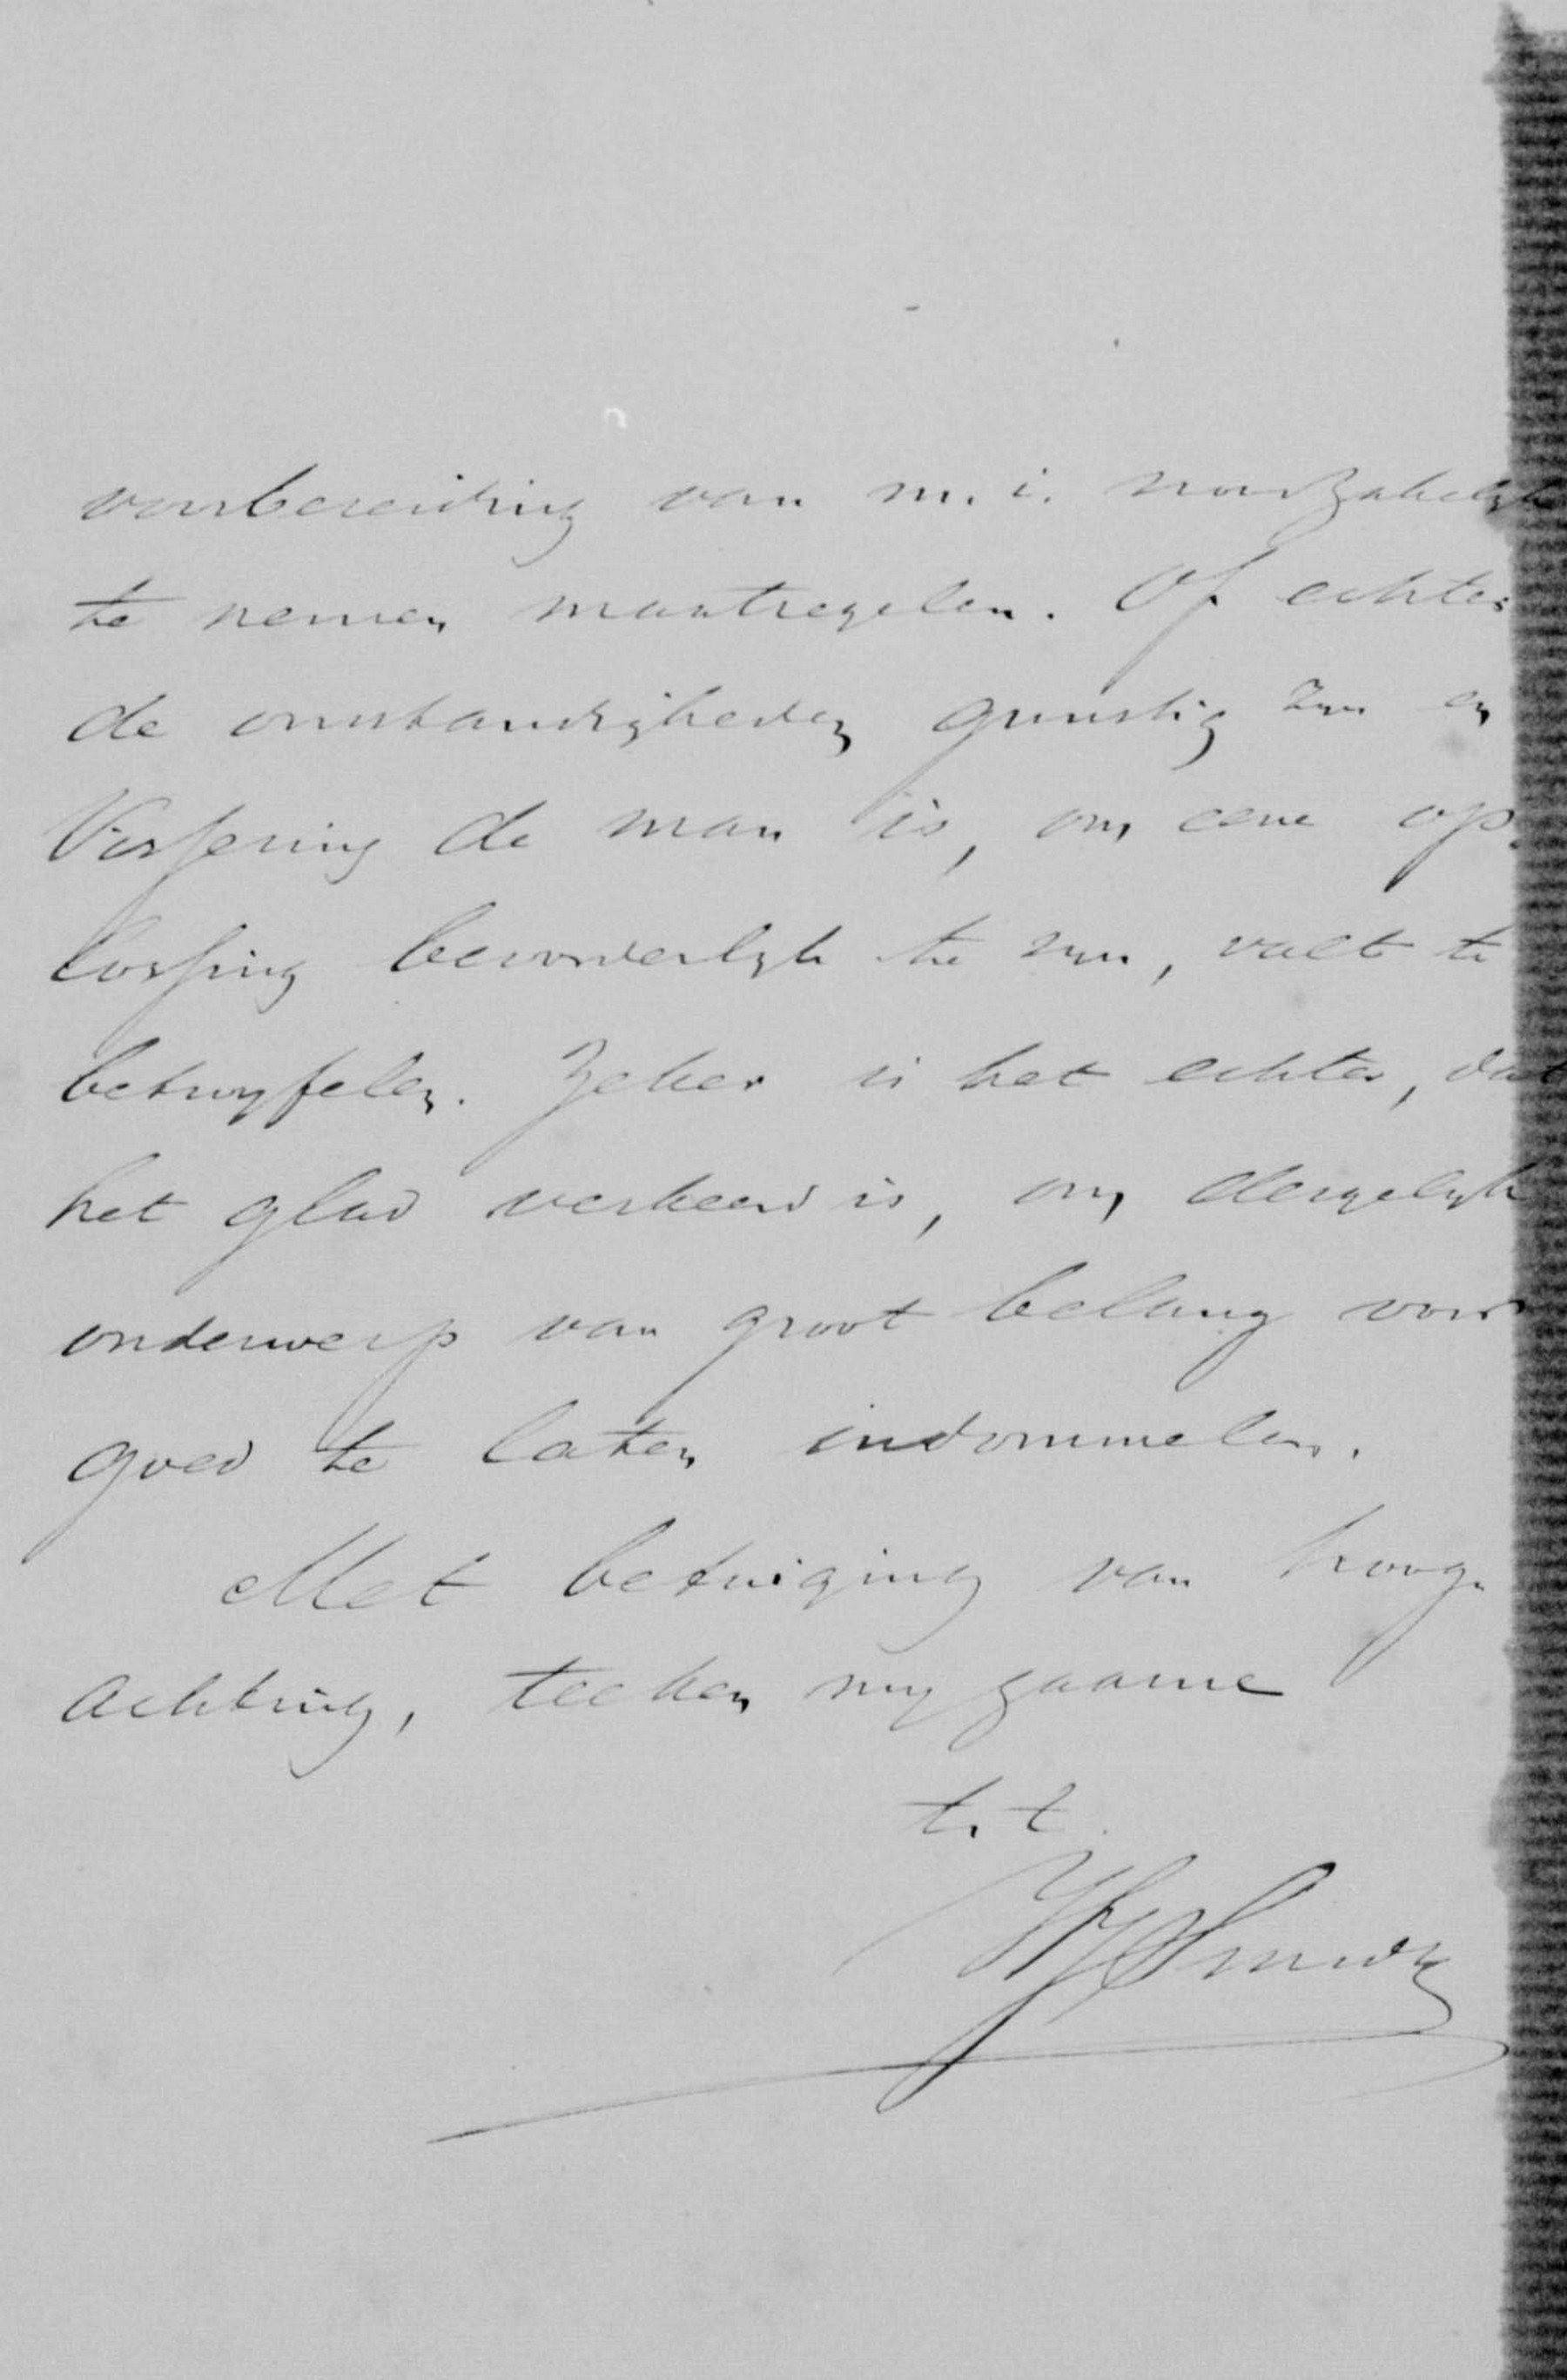 voorbereiding van m.i. noodzakelyk
te nemen maatregelen. Of echter
de omstandigheden gunstig zyn en
Vissering de man is, om eene op-
lossing bevorderlyk te zyn, valt te
betwyfelen. Zeker is het echter, dat
het glad verkeerd is, om dergelyk
onderwerp van groot belang voor
goed te laten indommelen.
Met betuiging van hoog-
achting, teeken my gaarne
t.t.
HJSmidt